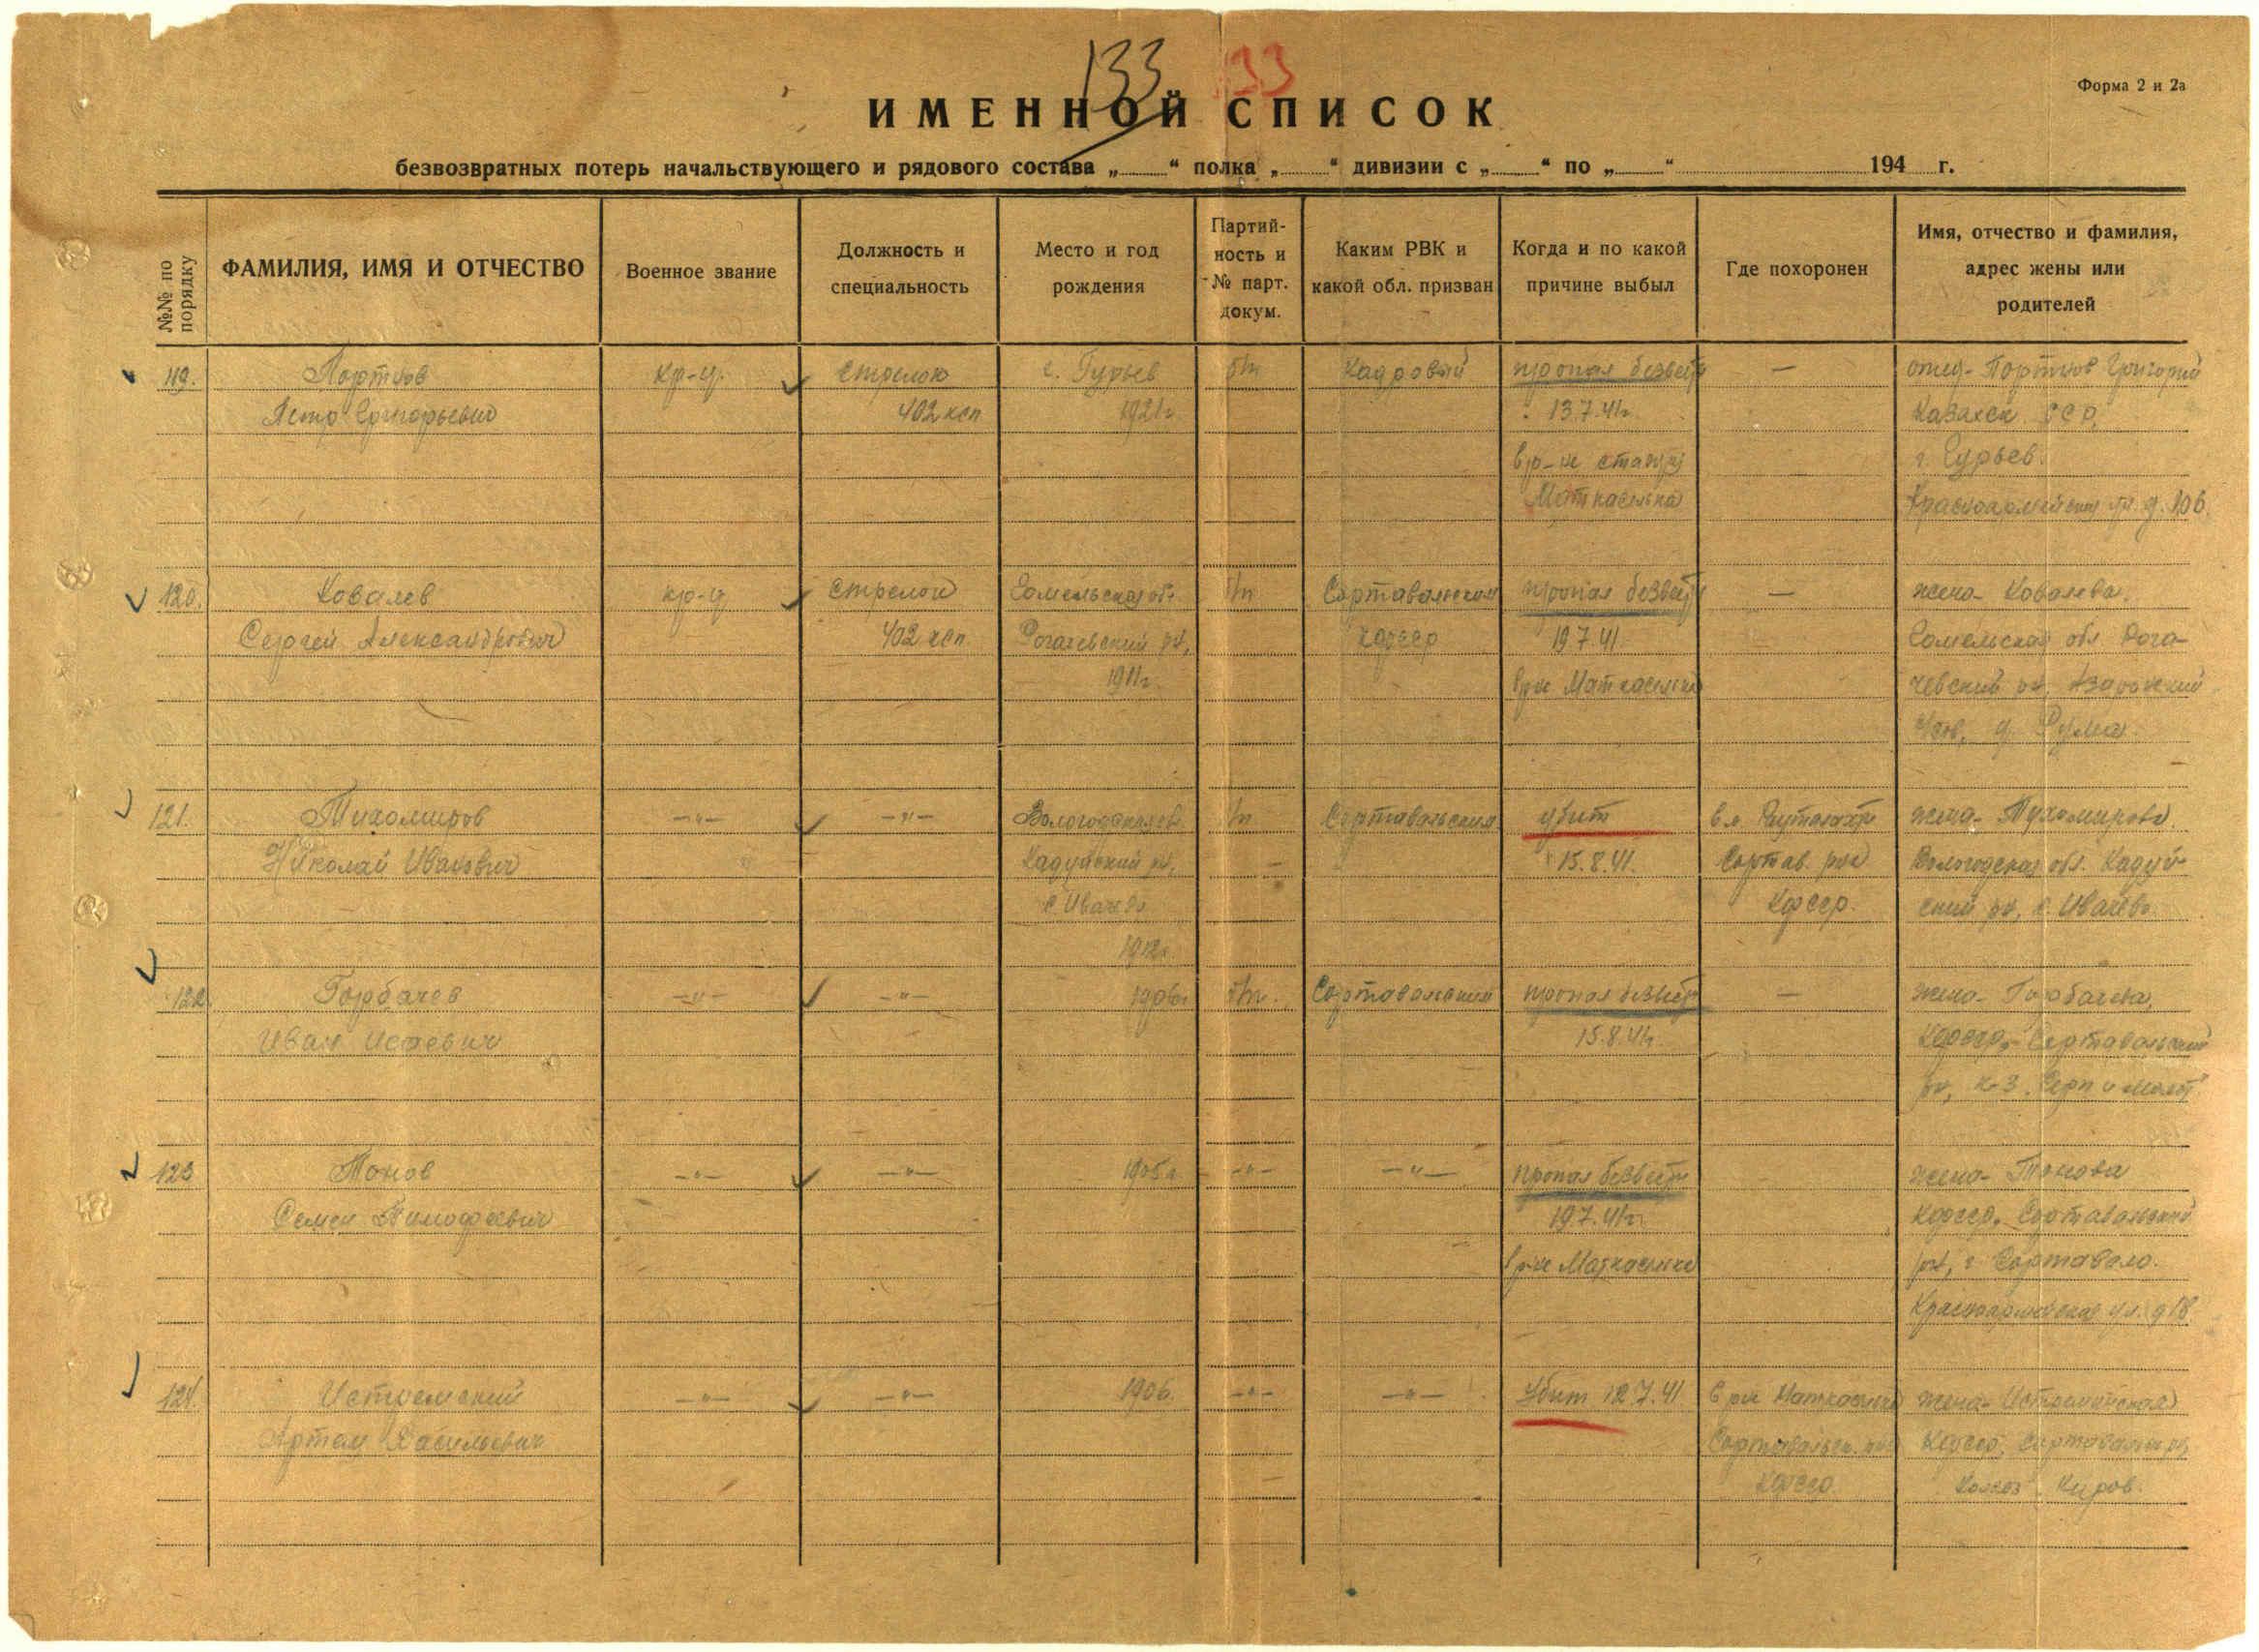 133 133
Форма 2 и 2а
ИМЕННОЙ СПИСОК
безвозвратных потерь начальствующего и рядового состава „ “ полка „ “ дивизии с „ “ по „ “ 194 г.
№№ по порядку
ФАМИЛИЯ, ИМЯ И ОТЧЕСТВО
Военное звание
Должность и
специальность
Место и год
рождения
Партий-
ность и
№ парт.
докум.
Каким РВК и
какой обл. призван
Когда и по какой
причине выбыл
Где похоронен
Имя, отчество и фамилия,
адрес жены или
родителей
119. Портнов кр-ц. стрелок г. Гурьев б/п Кадровый пропал безвести — отец-Портнов Григорий
Петр Григорьевич 402 ксп 1921г 13.7.41г. Казахск. ССР,
в р-не станции г. Гурьев.
Маткаселька Красноармейская ул. д. 106.
120. Ковалев кр-ц стрелок Гомельская об. б/п Сортавальским пропал безвести — жена-Ковалева.
Сергей Александрович 402 ксп. Рогачевский рн, кфсср 19.7.41 Гомельская обл. Рога-
1911г. в р-не Маткаселька чевский рн,
с/сов, д.
121. Тихомиров —"— —"— Вологодская об. б/п Сортавальским убит жена-Тихомирова.
Николай Иванович Кадуйский рн, 15.8.41. Сортав. рна Вологодская обл. Кадуй-
с. Ивачево Кфсср. ский рн, с. Ивачево
1912г.
122. Горбачев —"— —"— 1906г. б/п. Сортавальским пропал безвести — жена-Горбачева,
Иван Исаевич 15.8.41г. Кфсср, Сортавальский
рн, к-з. Серп и молот
123 Тонов —"— —"— 1905г. —"— —"— пропал безвести жена-Тонова
Семен Тимофеевич 19.7.41г. Кфсср. Сортавальский
в р-не Маткаселька рн, г. Сортавала.
Красноармейская ул. д 18
124. —"— —"— 1906. —"— —"— убит 12.7.41 в рне Маткаселька жена-
Артем Васильевич Сортавальск. рна Кфсср, Сортавальск. рн,
Кфсср. Колхоз. Киров.